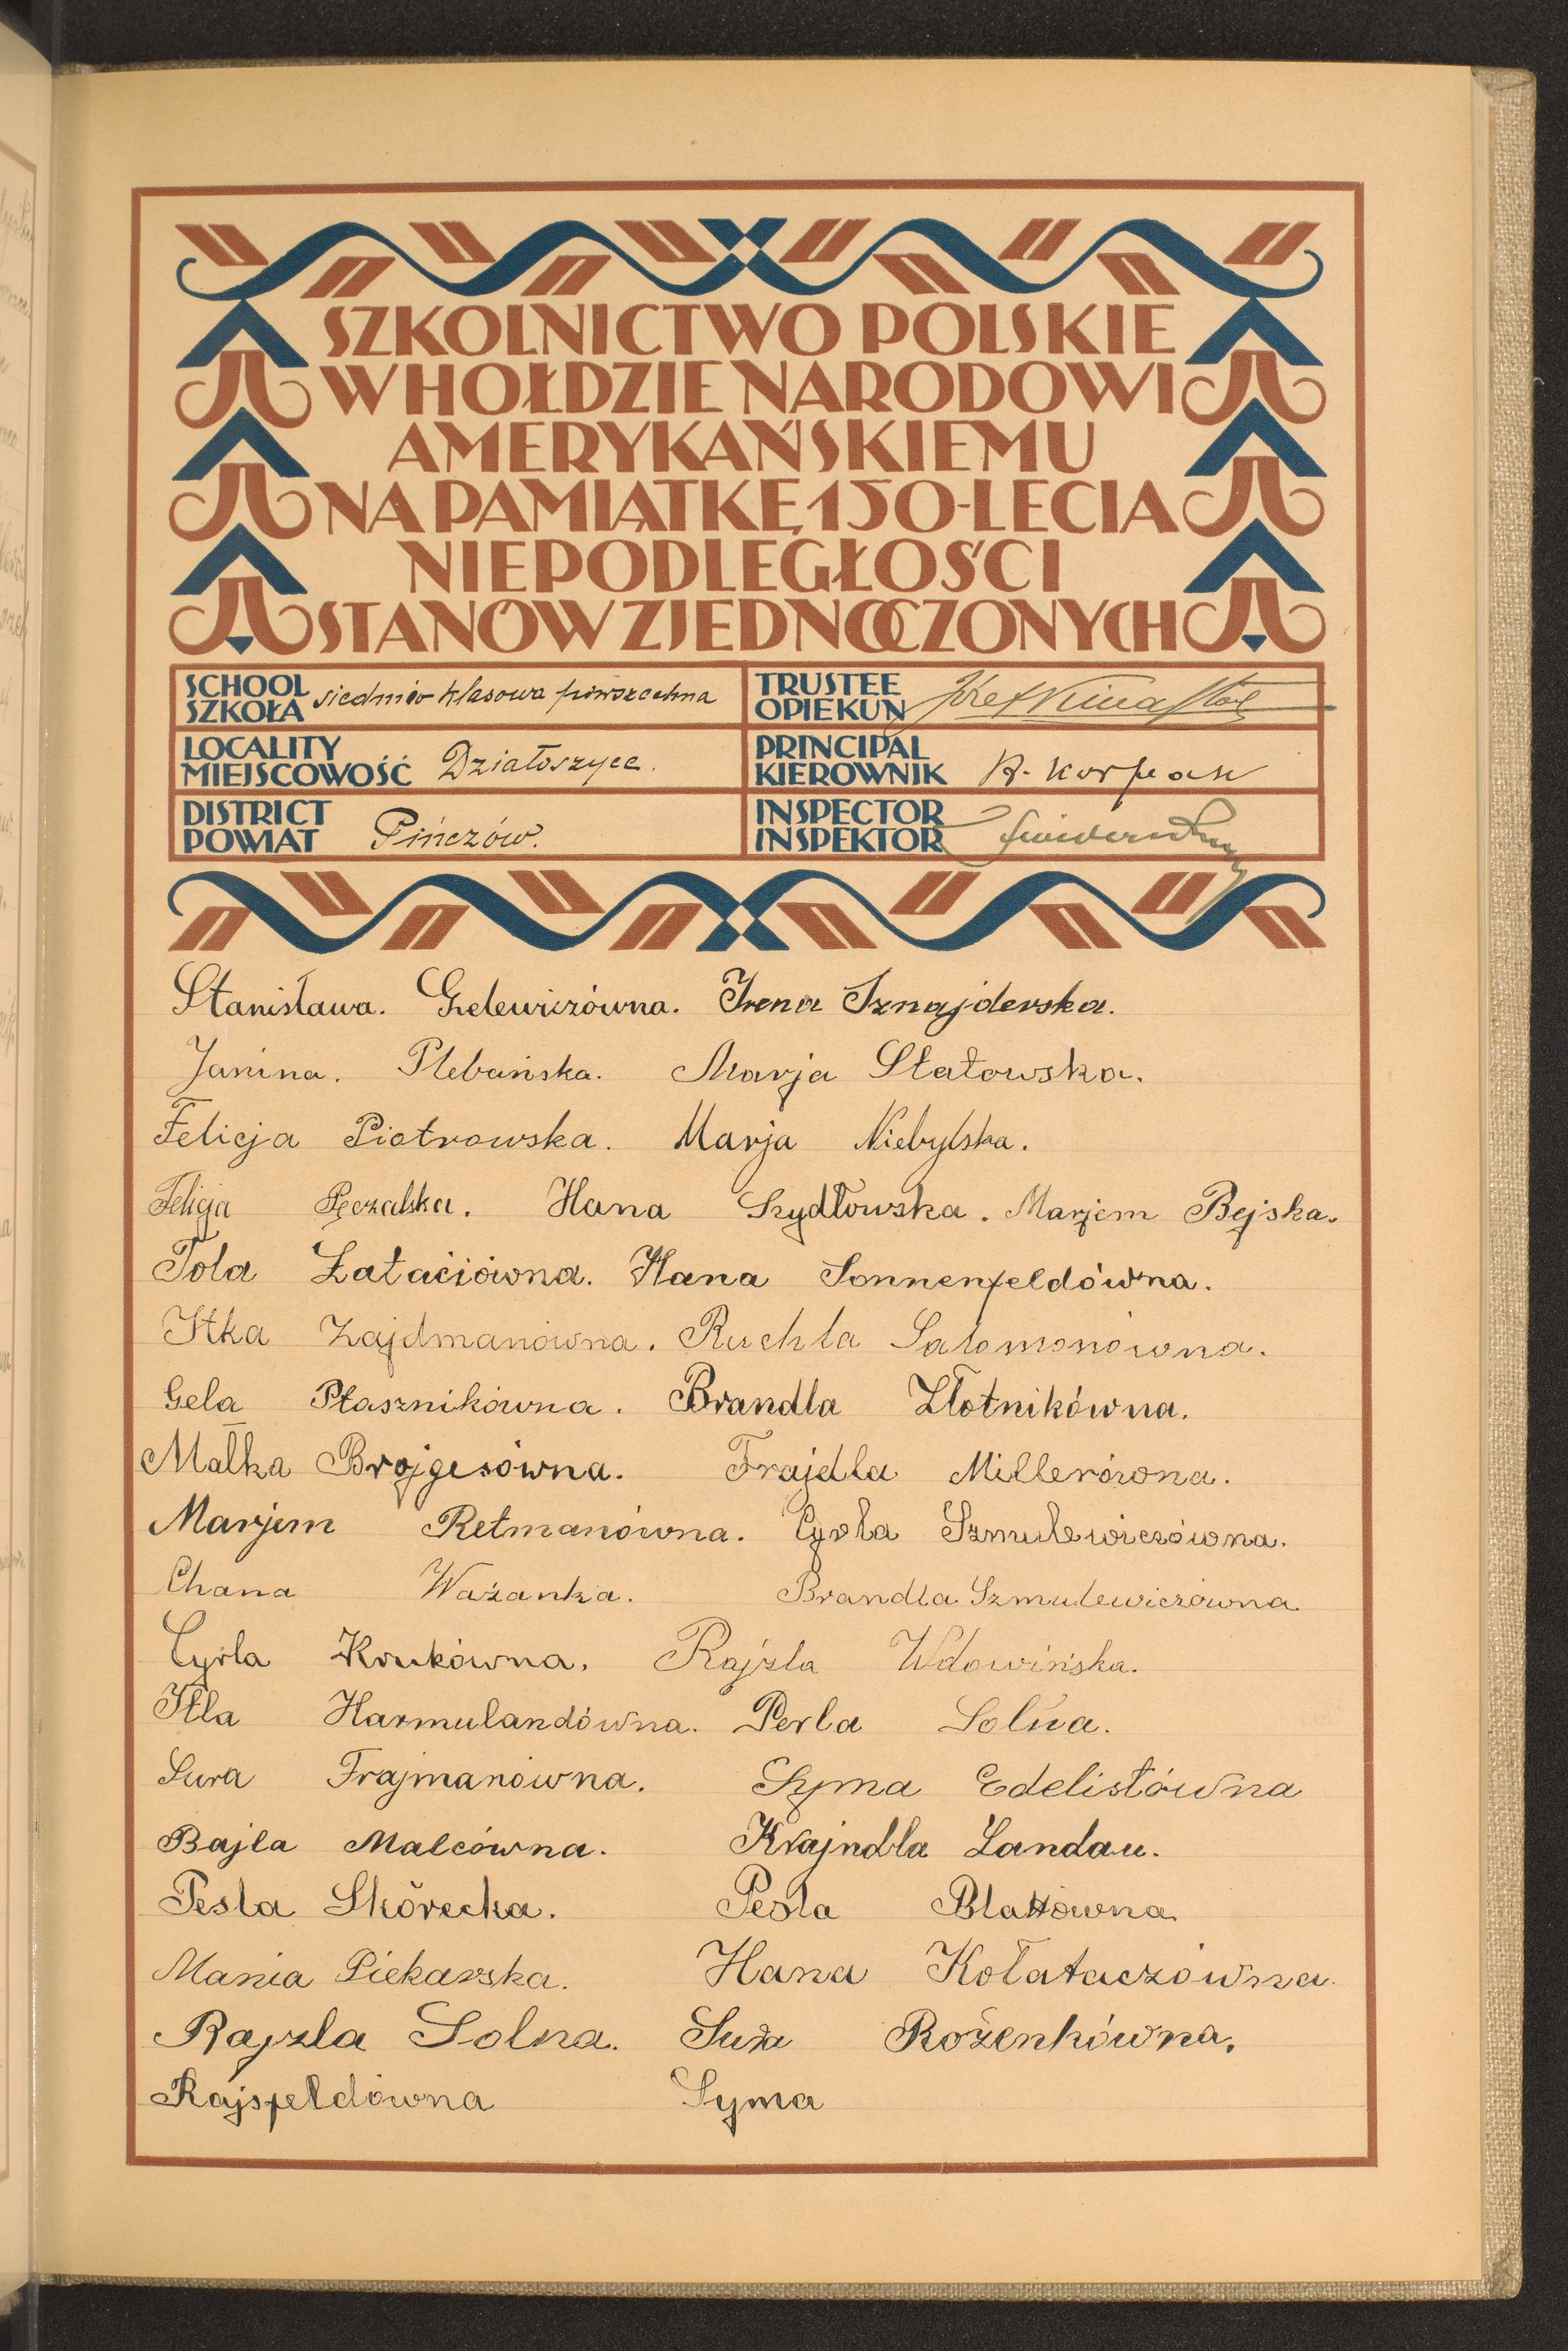 SZKOLNICTWO POLSKIE
W HOŁDZIE NARODOWI
AMERYKAŃSKIEMU
NA PAMIĄTKĘ 150-LECIA
NIEPODLEGŁOŚCI
STANÓW ZJEDNOCZONYCH
SCHOOL SZKOŁA siedmio klasowa powszechna
TRUSTEE OPIEKUN Józef
LOCALITY MIEJSCOWOŚĆ Działoszyce.
PRINCIPAL KIEROWNIK R. Korpak
DISTRICT POWIAT Pińczów.
INSPECTOR INSPEKTOR
Stanisława. Gzelewiczówna. Irena Sznajderska.
Janina. Plebańska. Marja Słatowska.
Felicja Piotrowska. Marja Niebylska.
Felicja Pęczalska. Hana Szydłowska. Marjem Bejska.
Tola Łataciówna. Hana Sonnenfeldówna.
Itka Zajdmanówna. Ruchla Salomonówna.
Gela Ptasznikówna. Brandla Złotnikówna.
Małka Brojgesówna. Frajdla Millerówna.
Marjem Retmanówna. Cyrla Szmulewiczówna.
Chana Ważanka. Brandla Szmulewiczówna
Cyrla Krukówna. Rajzla Wdowińska.
Itla Harmulandówna. Perla Solna.
Sura Frajmanówna. Syma Edelistówna
Bajla Malcówna. Krajndla Landau.
Pesla Skórecka. Pesla Blattówna.
Mania Piekarska. Hana Kołataczówna.
Rajzla Solna. Sura Rożenkówna.
Rajsfeldówna Syma